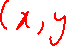 (x, y